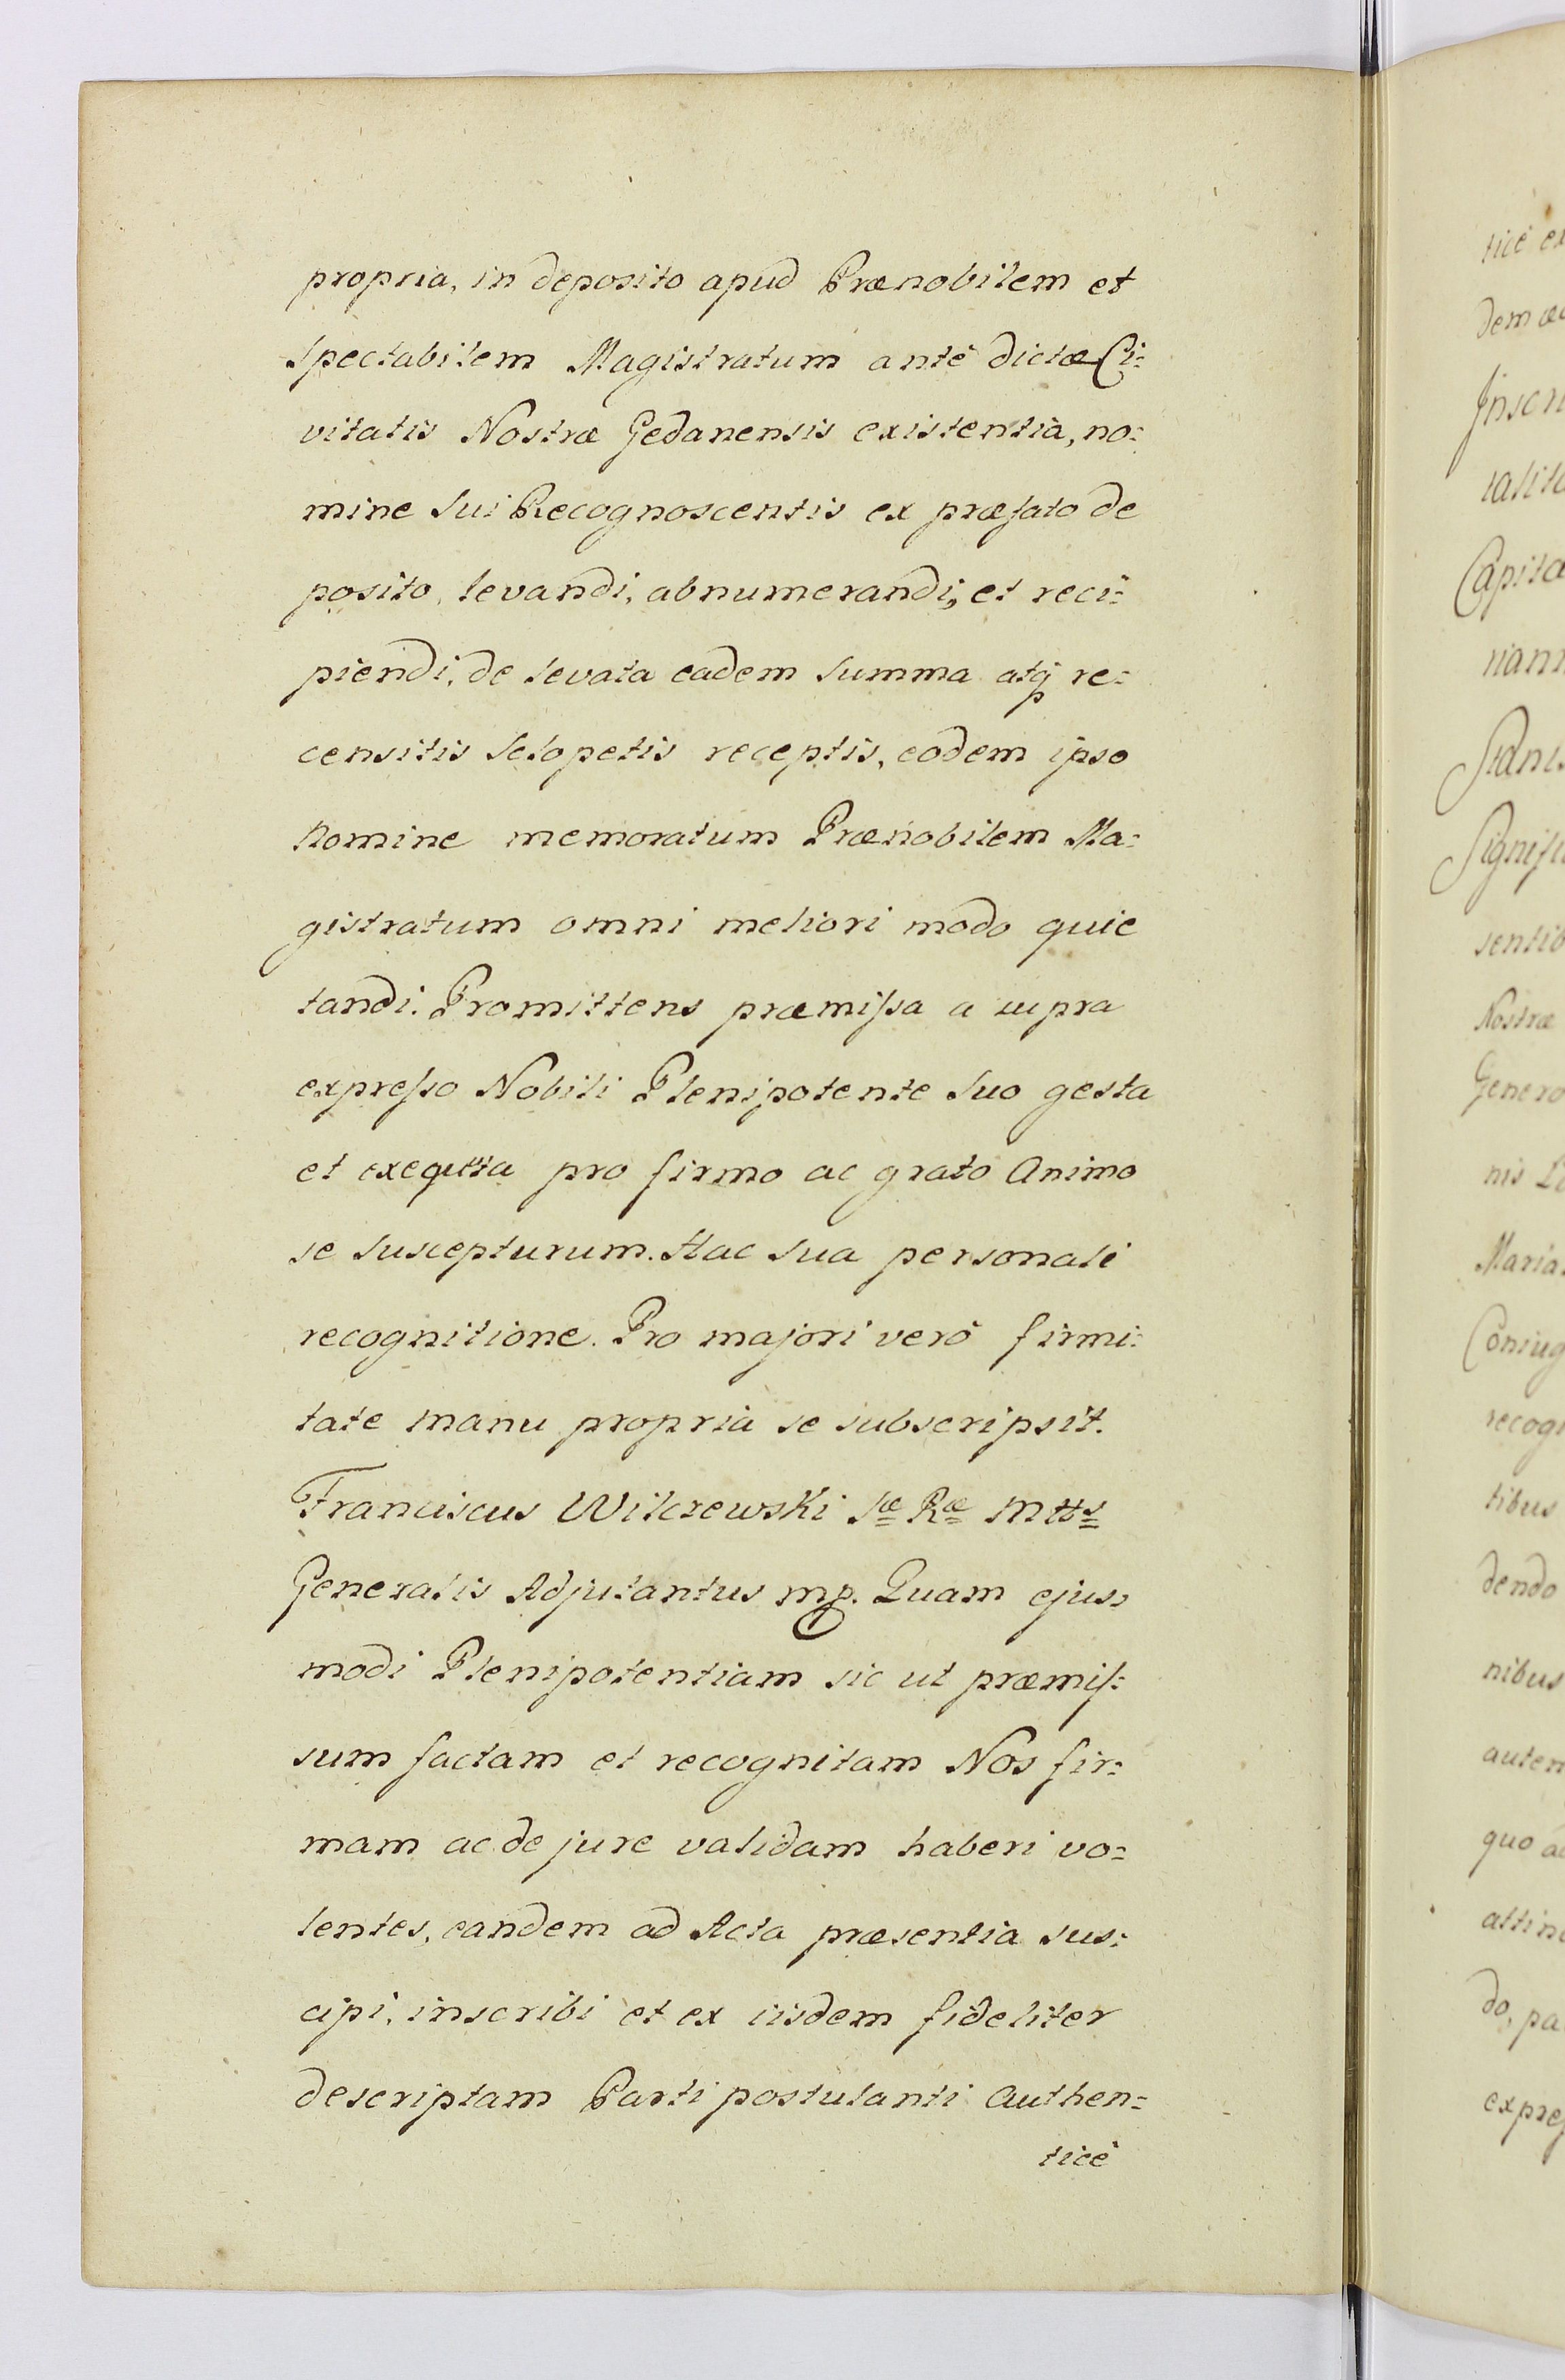 propria, in deposito apud Prænobilem et
spectabilem Magistratum antè dictæ Ci=
vitatis Nostræ Gedanensis existentia, no=
mine sui Recognoscentis ex præfato de
posito, levandi, abnumerandi, et reci=
piendi, de levata eadem summa atq, re=
censitis sclopetis receptis, eodem ipso
Nomine memoratum Prænobilem Ma=
gistratum omni meliori modo quie
tandi. Promittens præmiſsa a supra
expreſso Nobili Plenipotente suo gesta
et exequta pro firmo ac grato animo
se suscepturum. Hac sua personali
recognitione. Pro majori verò firmi=
tate manu propria se subscripsit.
Franciscus Wilczewski Sæ Ræ Mttis
Generalis Adjutantus mp. Quam ejus=
modi Plenipotentiam sic ut præmiſ=
sum factam et recognitam Nos fir=
mam ac de jure validam haberi vo=
lentes, eandem ad Acta præsentia sus=
cipi, inscribi et ex iisdem fideliter
descriptam Parti postulanti authen=
ticè
ticè
Nostræ
nis
Maria
tibus
dendo
nibus
quo
do, pa